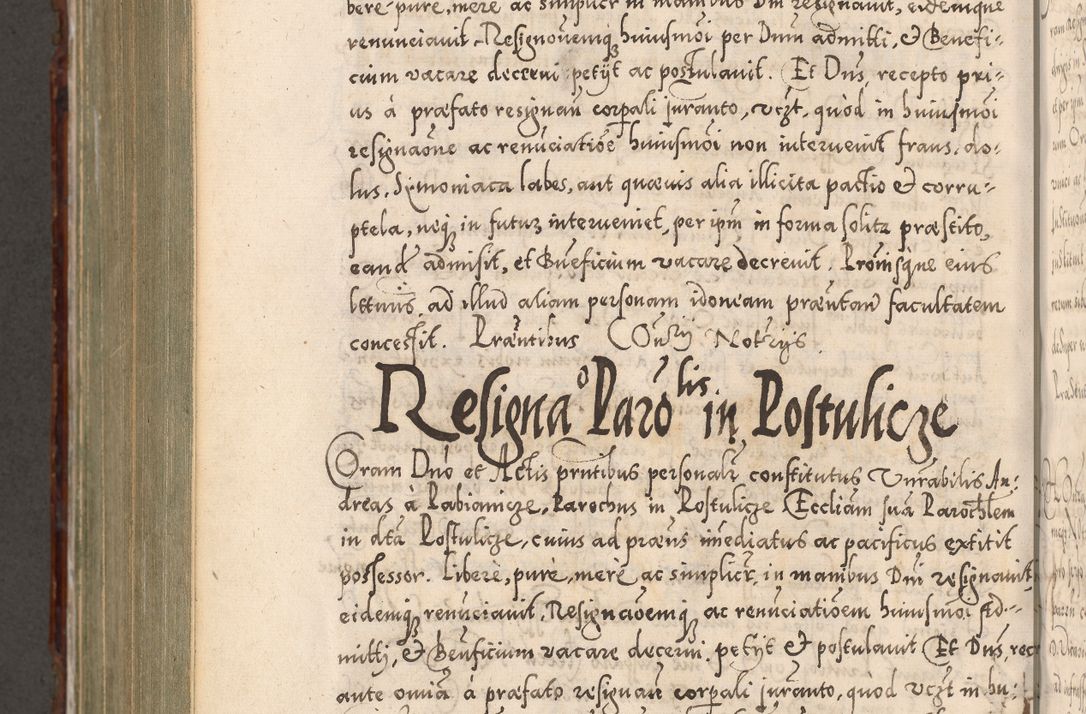 bere pure, mere ac simplicr in manibus Dni resignauit, eidemque
renunciauit. Resignouemq́ huiusmoi per Dnm admitti, & Benefi-
cium vacare decerni petijt ac postulauit. Et Dns, recepto pri-
us à præfato resignan̄ corpali juranto, vczt, quòd in huiusmoi
resignaone ac renuciatiōe huiusmoi non interuenit fraus, do-
lus, Symoniaca labes, aut quæuis alia illicita pactio & corru-
ptela, neq́ in futur interueniet, per ipm in forma solita præstito,
eand admisit, et Bneficium vacare decreuit. Prouisque eius
ltturis, ad illud aliam personam idoneam præntan facultatem
concessit. Præntibus Notrijs.
Resignao Paro lis in Postulicze
Coram Dno et Actis pntibus personalr constitutus Vnrabilis An-
dreas à Pabianicze, Parochus in Postulicze Eccliam suā Parochlem
in dtā Postulicze, cuius ad præns imediatus ac pacificus extitit
possessor. Libere, pure, mere ac simplicr, in manibus Dni resignauit
eidemq́ renunciauit, Resignaōemq́ ac renuciatiōem huiusmoi Ad-
mitti, & Beneficium vacare decerni, petijt & postulauit Et Dns, rec
ante omīa à præfato resignan̄ corpali juranto, quod vczt in hu-